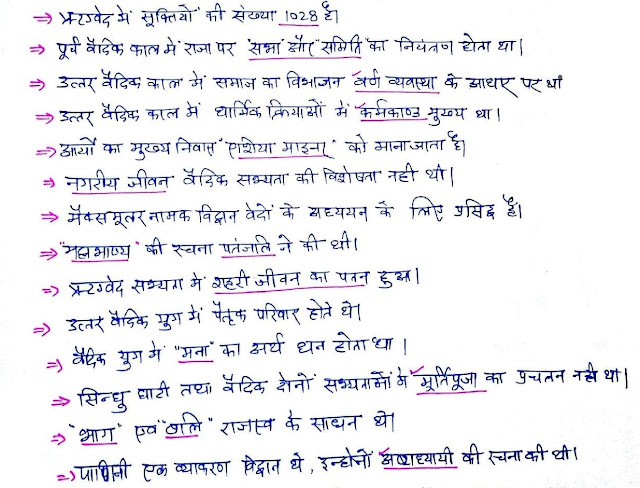 ⇒ ऋग्वेद में सूक्तियों की संख्या 1028 है।
⇒ पूर्व वैदिक काल में राजा पर सभा और "समिति" का नियंत्रण होता था।
⇒ उत्तर वैदिक काल में समाज का विभाजन वर्ण व्यवस्था के आधार पर था
⇒ उत्तर वैदिक काल में धार्मिक क्रियाओं में कर्मकाण्ड मुख्य था।
⇒ आर्यों का मुख्य निवास "एशिया माइनर" को माना जाता है।
⇒ नगरीय जीवन वैदिक सभ्यता की विशेषता नही थी।
⇒ मैक्समूलर नामक विद्वान वेदों के अध्ययन के लिए प्रसिद्ध हैं।
⇒ "महाभाष्य" की रचना पतंजलि ने की थी।
⇒ ऋग्वेद सभ्यता में शहरी जीवन का पतन हुआ।
⇒ उत्तर वैदिक युग में पैतृक परिवार होते थे।
⇒ वैदिक युग में "मना" का अर्थ धन होता था।
⇒ सिन्धु घाटी तथा वैदिक दोनों सभ्यताओं में मूर्तिपूजा का प्रचलन नही था।
⇒ "भाग" एवं "बलि" राजस्व के साधन थे।
⇒ पाणिनी एक व्याकरण विद्वान थे, इन्होनें अष्टाध्यायी की रचना की थी।